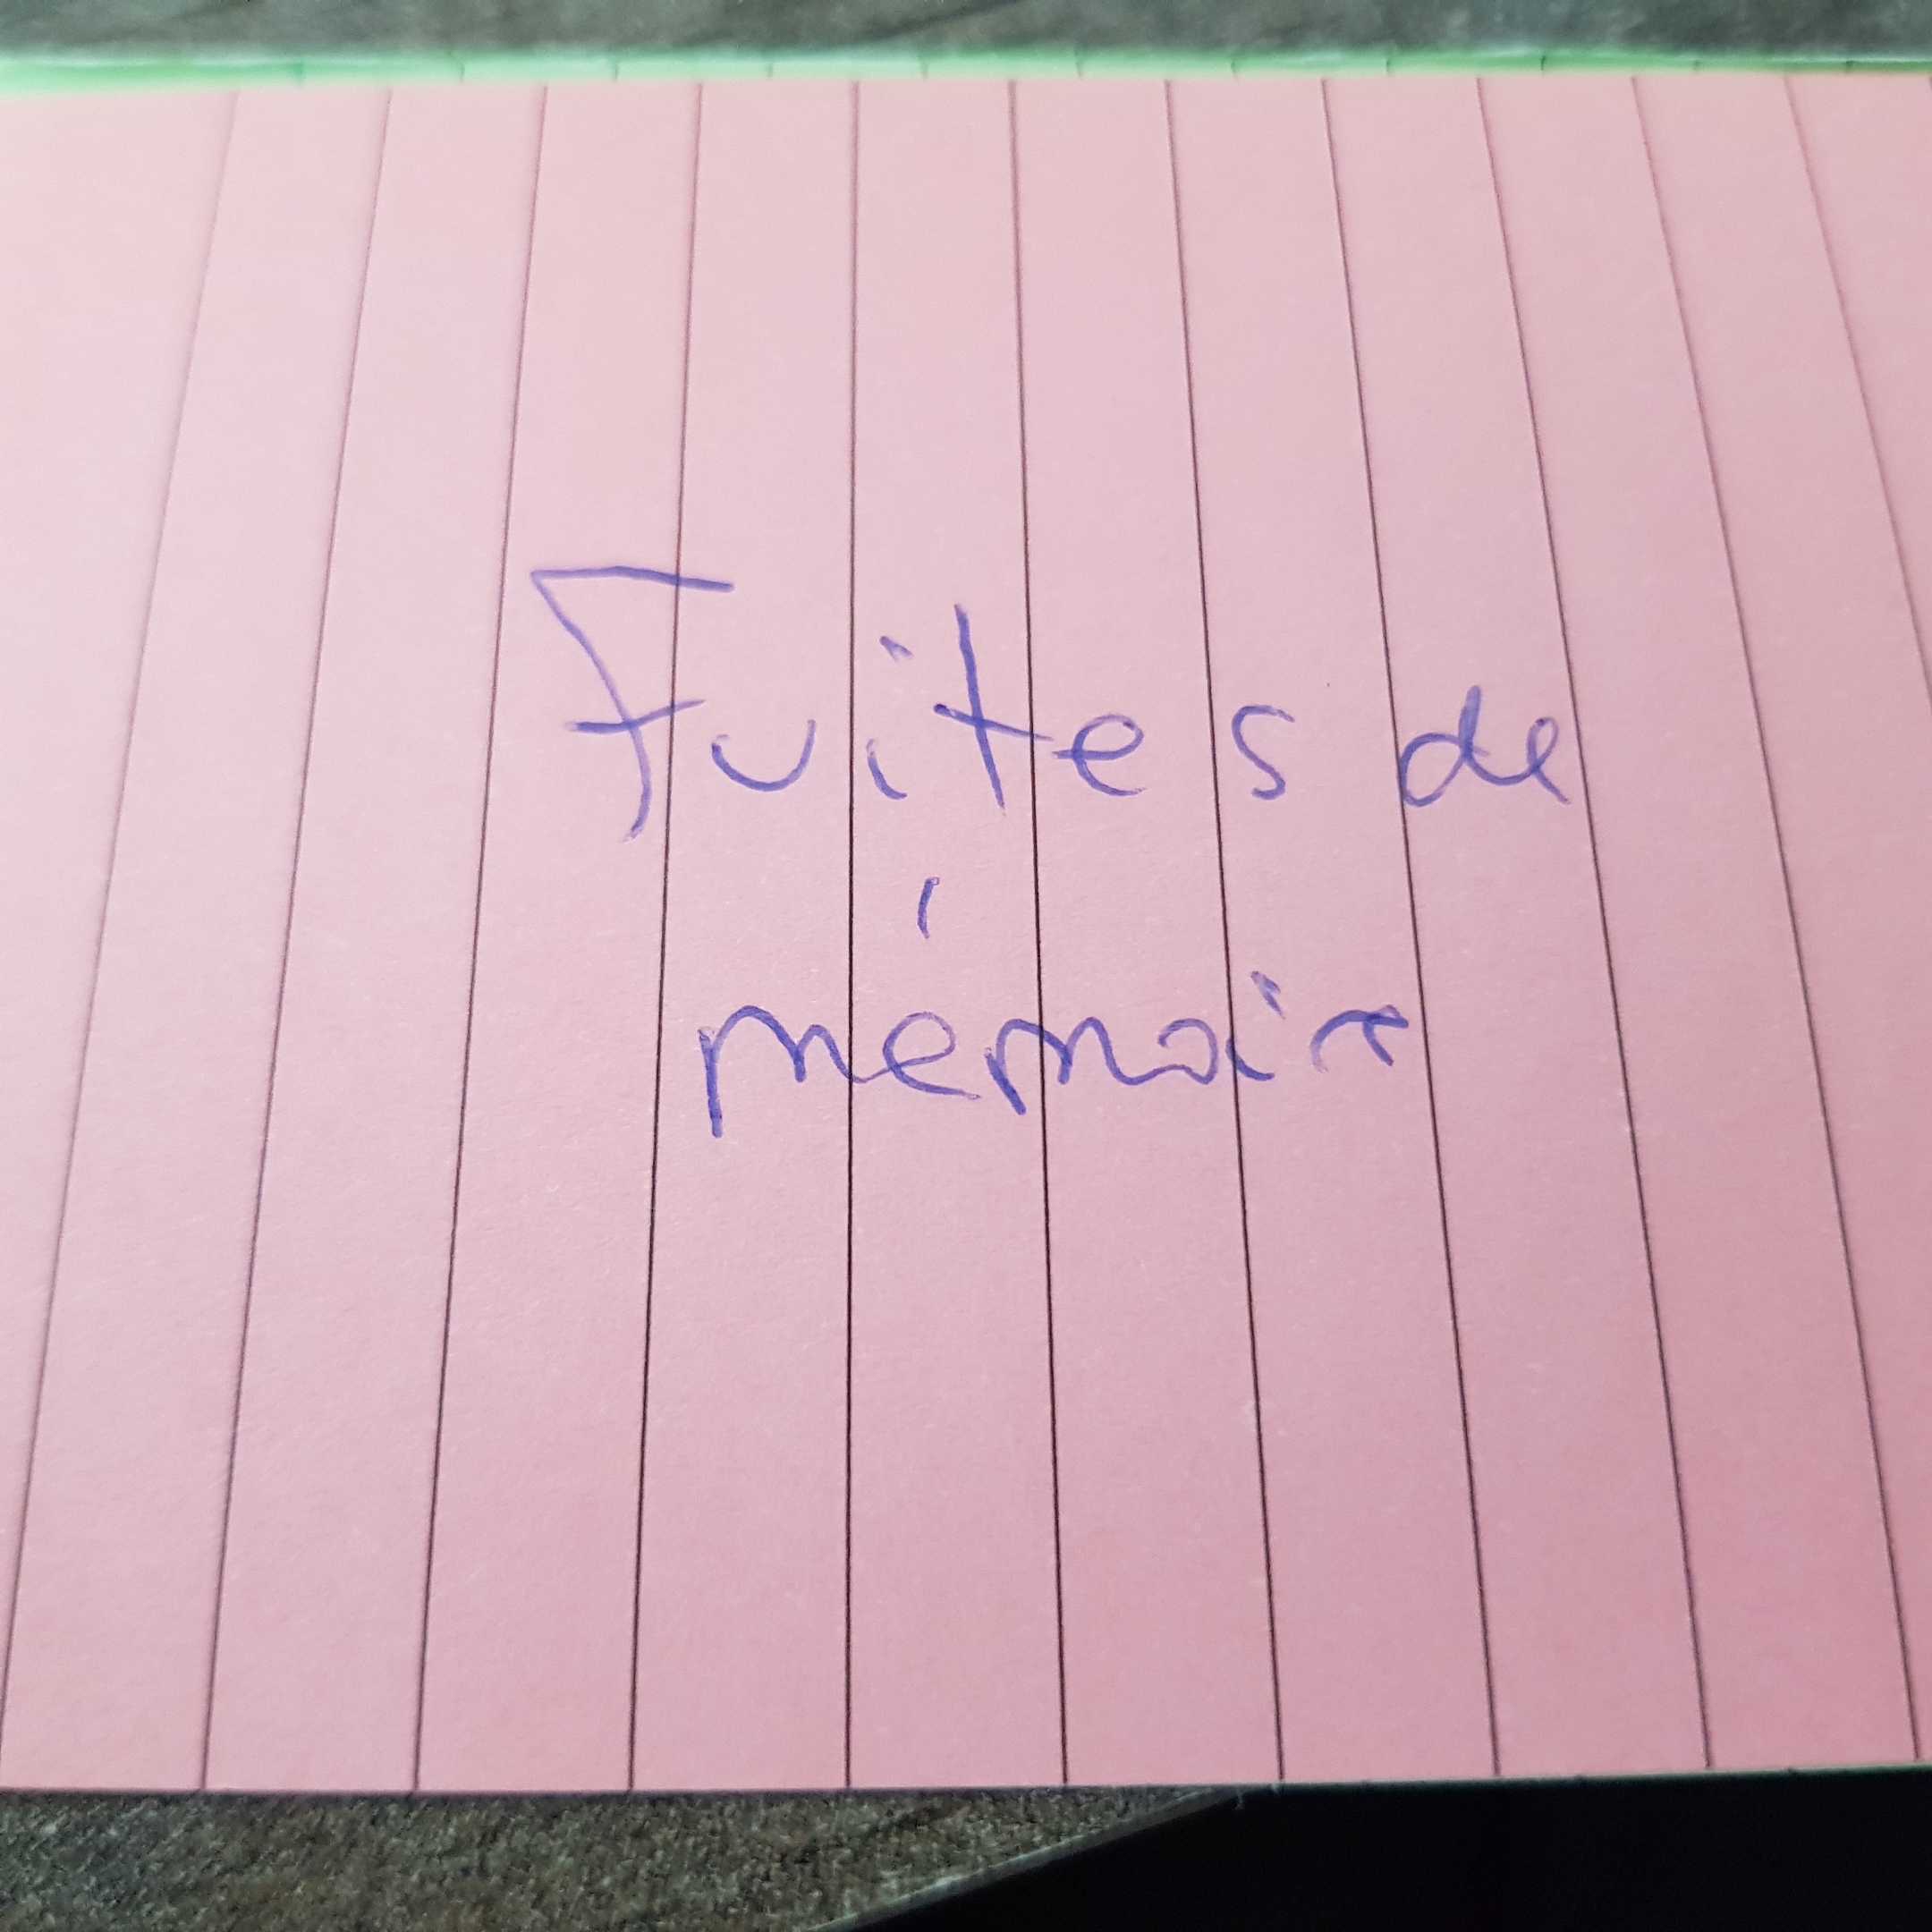 Fuites de
mémoire